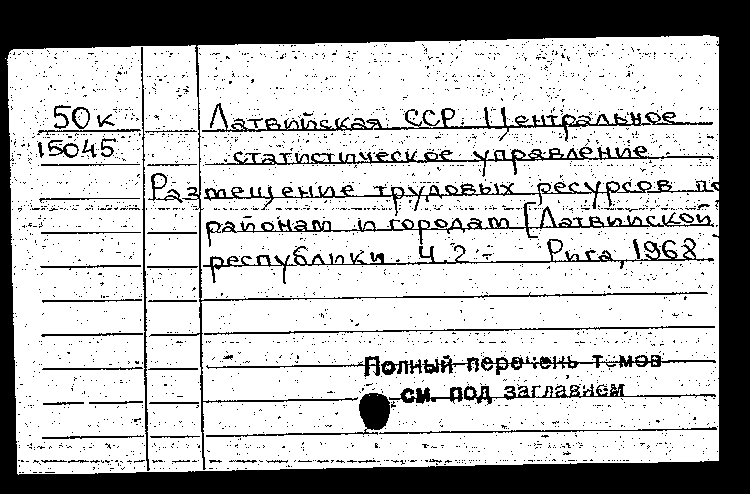 50к Латвийская ССР. Центральное
15045 статистическое управление
Размещение трудовых ресурсов по
районам и городам [Латвийской
республики. Ч.2 - Рига, 1968
Полный перечень томов
см. под заглавием